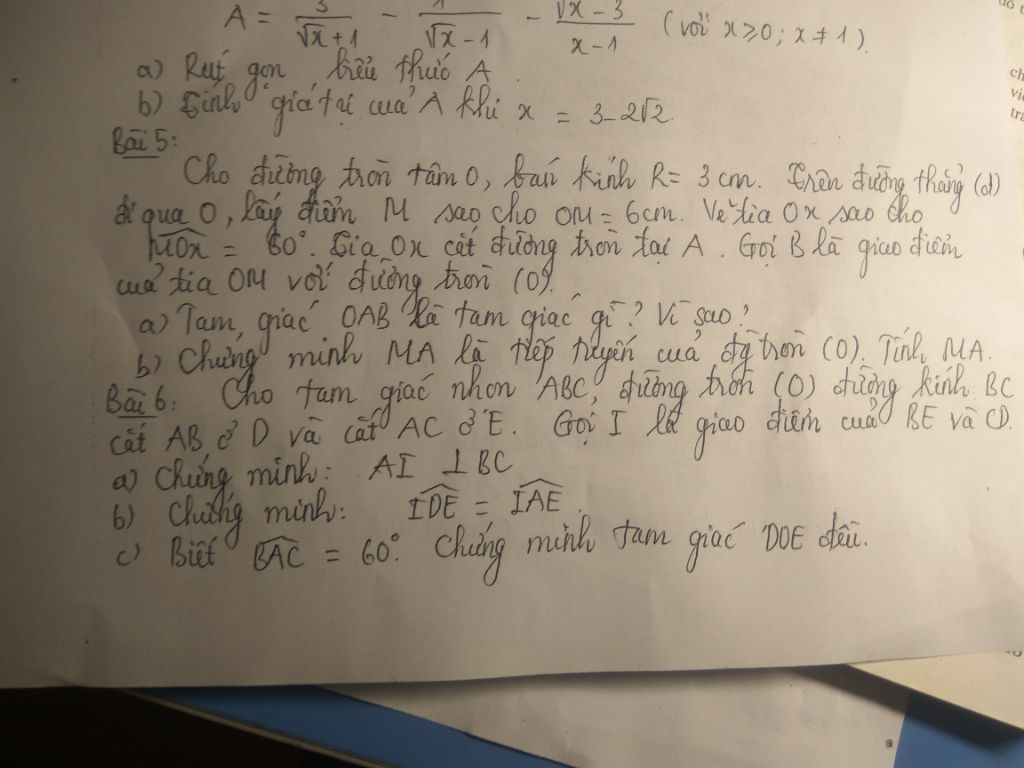 A = 3/(√x + 1) - 1/(√x - 1) - (√x - 3)/(x - 1) (với x ≥ 0; x ≠ 1).
a) Rút gọn biểu thức A.
b) Tính giá trị của A khi x = 3 - 2√2.
Bài 5:
Cho đường tròn tâm O, bán kính R = 3 cm. Trên đường thẳng (d)
đi qua O, lấy điểm M sao cho OM = 6cm. Vẽ tia Ox sao cho
MOx = 60°. Tia Ox cắt đường tròn tại A. Gọi B là giao điểm
của tia OM với đường tròn (O).
a) Tam giác OAB là tam giác gì? Vì sao?
b) Chứng minh MA là tiếp tuyến của đg tròn (O). Tính MA.
Bài 6: Cho tam giác nhọn ABC, đường tròn (O) đường kính BC
cắt AB ở D và cắt AC ở E. Gọi I là giao điểm của BE và CD.
a) Chứng minh: AI ⊥ BC
b) Chứng minh: IDE = IAE.
c) Biết BAC = 60°. Chứng minh tam giác DOE đều.